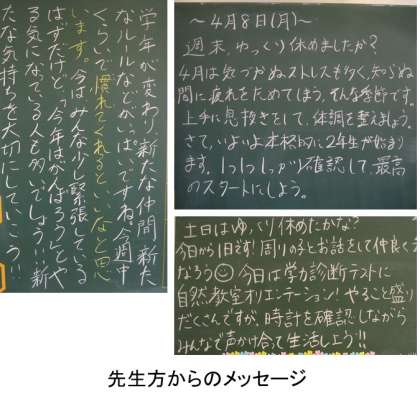 学年が変わり、新たな仲間、新た
なルールなどがいっぱいですね。今週中
くらいで慣れてくれるといいなと思
います。今はみんな少し緊張している
はずだけど、「今年はがんばろう」とや
る気になっている人も多いでしょう!!新
たな気持ちを大切にしていこう!!
～4月8日(月)～
週末、ゆっくり休めましたか?
4月は気づかぬストレスも多く、知らぬ
間に疲れをためてしまう、そんな季節です。
上手に息抜きをして、体調を整えましょう。
さて、いよいよ本格的に2年生が始まり
ます。1つ1つしっかり確認して、最高
のスタートにしよう。
土日はゆっくり休めたかな?
今日から1日です!周りの子とお話をして仲良く
なろう 今日は学力診断テストに
自然教室オリエンテーション!やること盛り
だくさんですが、時計を確認しながら
みんなで声かけ合って生活しよう!!
先生方からのメッセージ